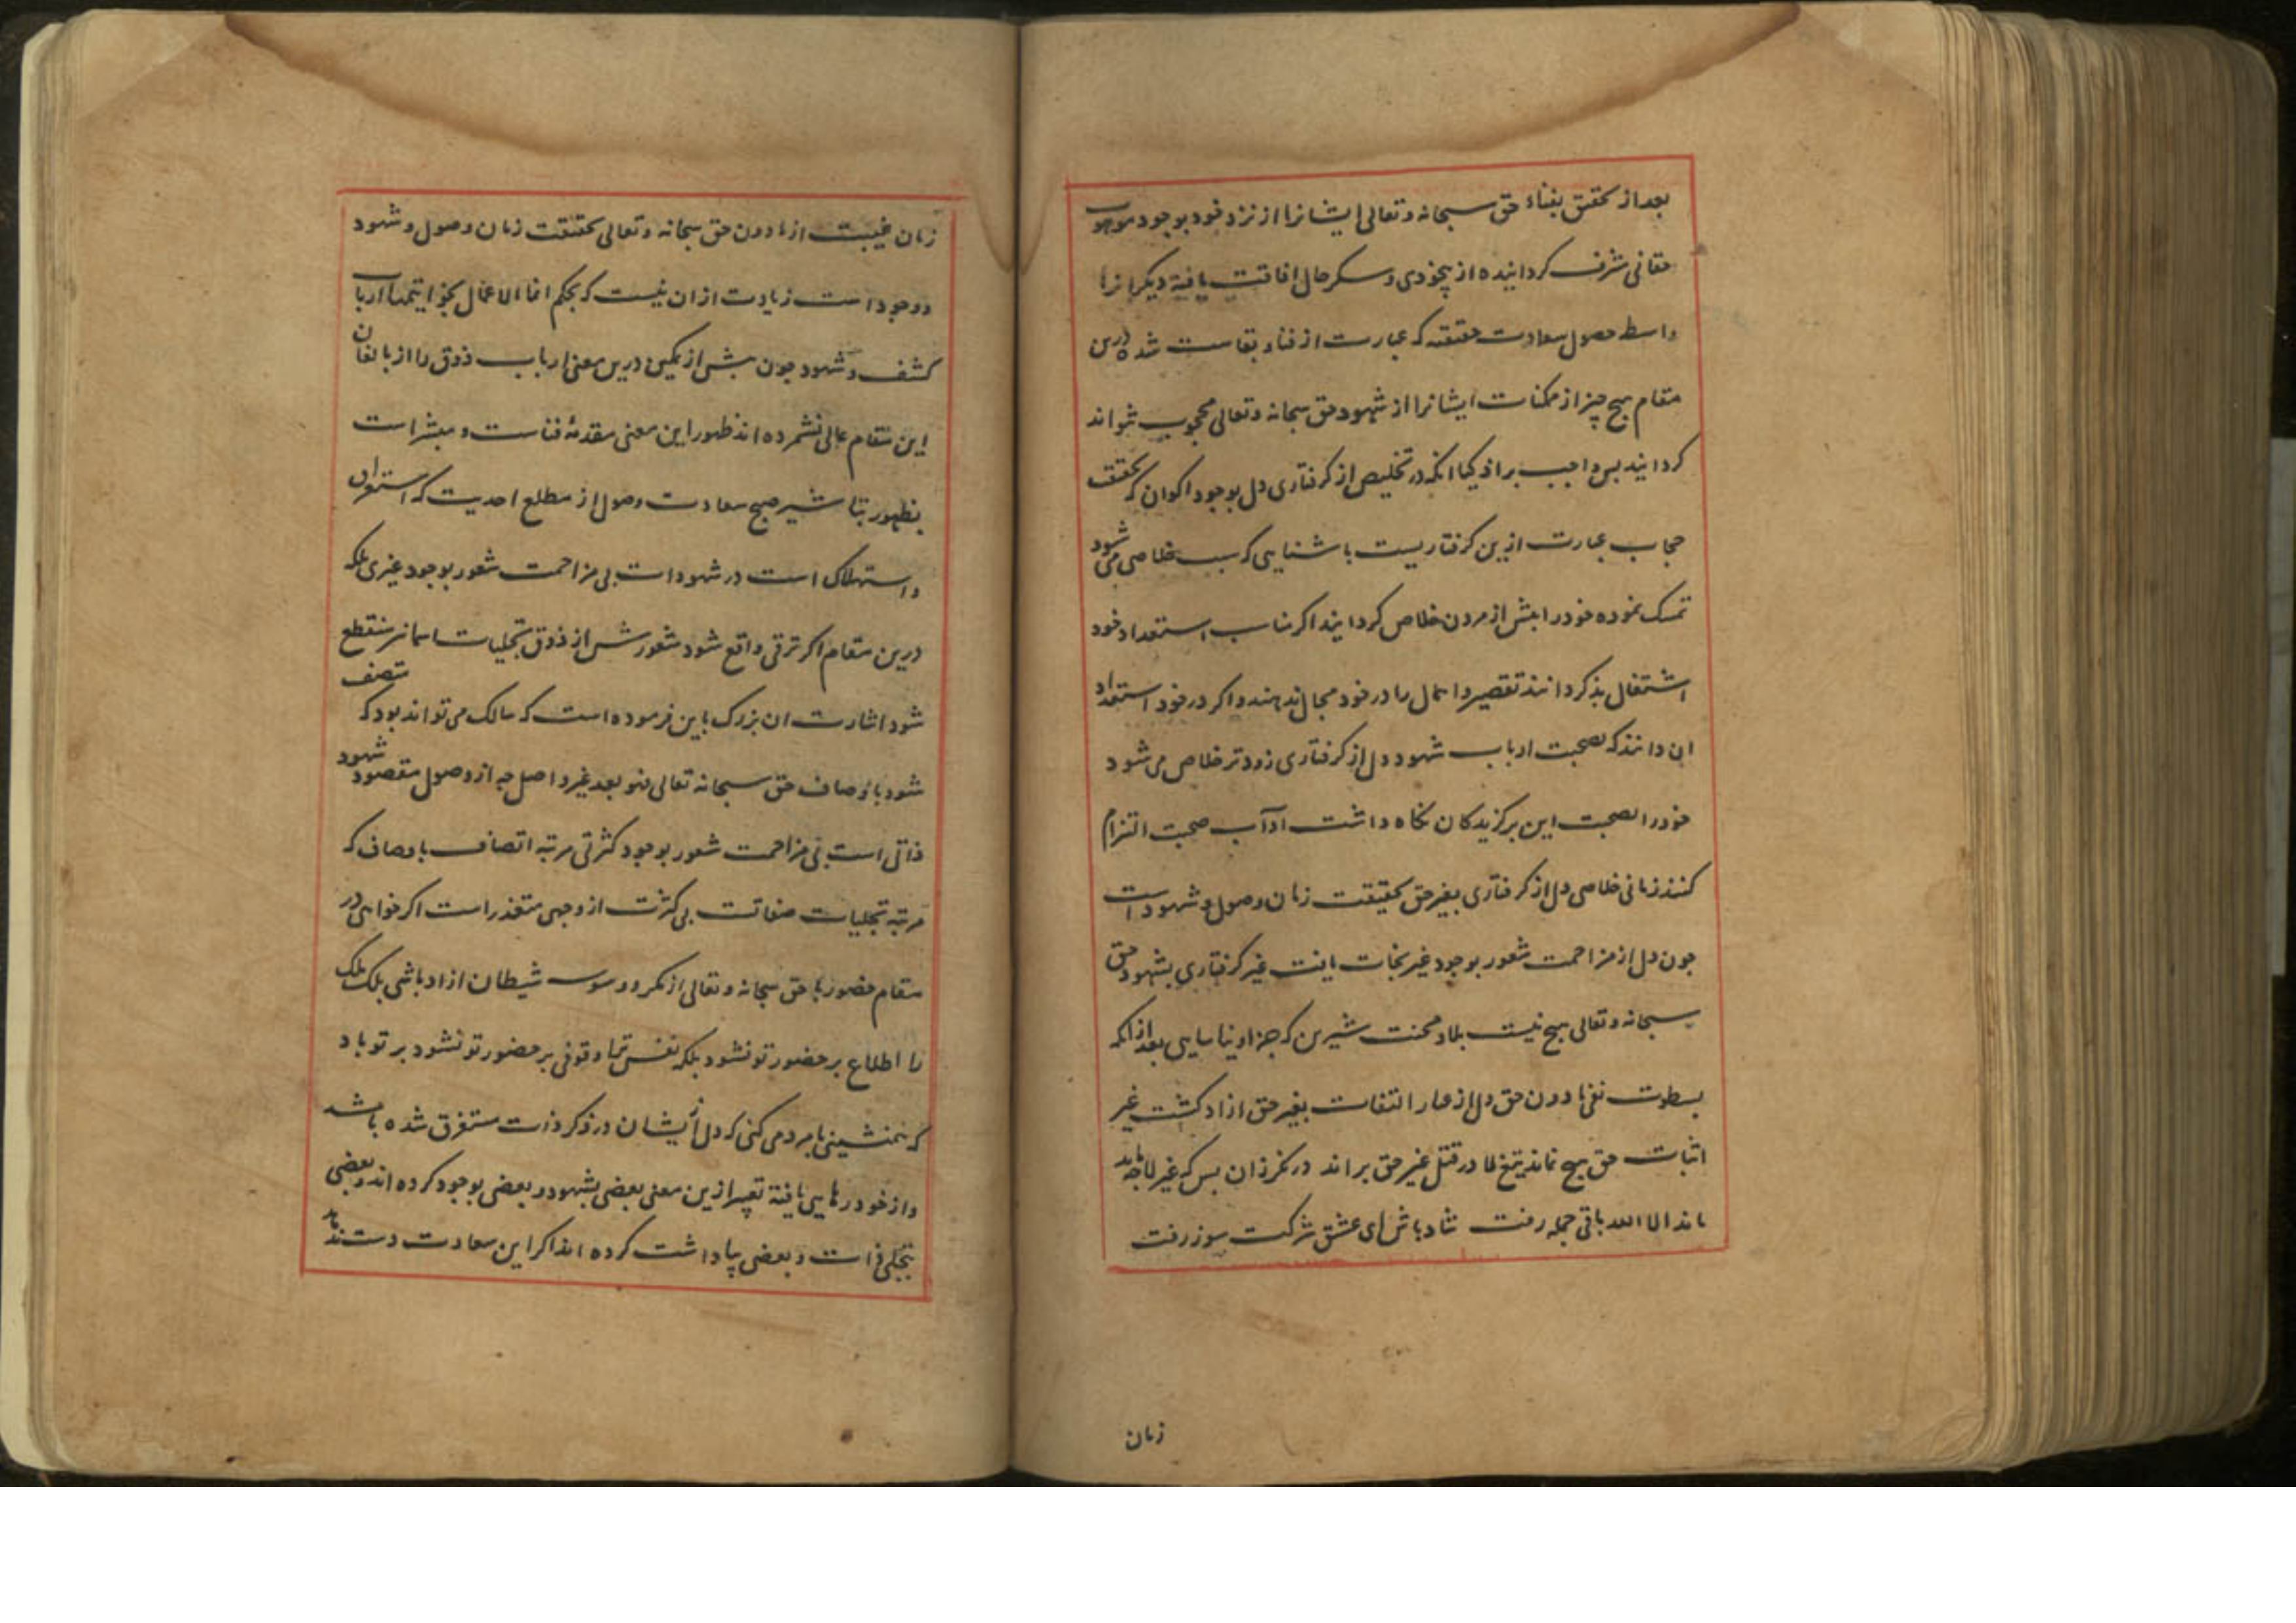 بعد از تحقیق بفناء حق سبحانه و تعالی ایشانرا از نزد خود بوجود موهوب
حقانی مشرف کردانیده از بیخودی و سکر حال افاقت یافته دیکرانرا
واسطه حصول سعادت حقیقیه که عبارت از فنا و بقاست شده درین
مقام هیچ چیز از ممکنات ایشانرا از شهود حق سبحانه و تعالی محجوب نتواند
کردانید پس واجب بر اذکیا انکه در تخلیص از کرفتاری دل بوجود اکوان که حقیقت
حجاب عبارت ازین کرفتاریست باشنایی که سبب خلاصی می شود
تمسک نموده خود را پیش از مردن خلاص کردانیند اکر مناسب استعداد خود
اشتغال بذکر دانند تقصیر و اهمال را در خود مجال ندهند و اکر در خود استعداد
ان دانند که بصحبت ارباب شهود دل از کرفتاری زودتر خلاص می شود
خود را بصحبت این برکزیدکان نکاه داشت آداب صحبت التزام
کنند زمانی خلاصی دل از کرفتاری بغیر حق بحقیقت زمان وصول و شهود است
چون دل از مزاحمت شعور بوجود غیر نجات یافت غیر کرفتاری بشهود حق
سبحانه و تعالی هیچ نیست بلا و محنت شیرین که جز او نیاسایی بعد از انکه
بسطوت نفی ما دون حق دل از عار التفات بغیر حق ازاد کشت غیر
اثبات حق هیچ نماند تیغ لا در قتل غیر حق براند درنکر زان پس که غیر لا چه ماند
ماند الا الله باقی جمله رفت شاد باش ای عشق شرکت سوز رفت
زمان
زمان غیبت از ما دون حق سبحانه و تعالی بحقیقت زمان وصول و شهود
و وجود است زیادت از ان نیست که بحکم انما الاعمال بخواتیمها ارباب
کشف و شهود چون پیش از تمکین درین معنی ارباب ذوق را از بالغان
این مقام عالی نشمرده اند ظهور این معنی مقدمه فناست و مبشر است
بظهور تباشیر صبح سعادت وصول از مطلع احدیت که استغراق
و استهلاک است در شهود ذات بی مزاحمت شعور بوجود غیری بلکه
درین مقام اکر ترقی واقع شود شعورش از ذوق تجلیات اسمائی منقطع
شود اشارت ان بزرک باین فرموده است که سالک می تواند بود که متصف
شود باوصاف حق سبحانه تعالی فهو بعد غیر واصل چه از وصول مقصود شهود
ذاتی است بی مزاحمت شعور بوجود کثرتی مرتبه اتصاف باوصاف که
مرتبه تجلیات صفاتست بی کثرت از وجهی متعذر است اکر خواهی در
مقام حضور با حق سبحانه و تعالی از مکر و وسوسه شیطان ازاد باشی بلک ملک
را اطلاع بر حضور تو نشود بلکه نفس ترا وقوفی بر حضور تو نشود بر تو باد
که همنشینی با مردمی کنی که دل ایشان در ذکر ذات مستغرق شده باشد
و از خود رهایی یافته تعبیر ازین معنی بعضی بشهود و بعضی بوجود کرده اند و بعضی
بتجلی ذات و بعضی بیاد داشت کرده اند اکر این سعادت دست ندهد